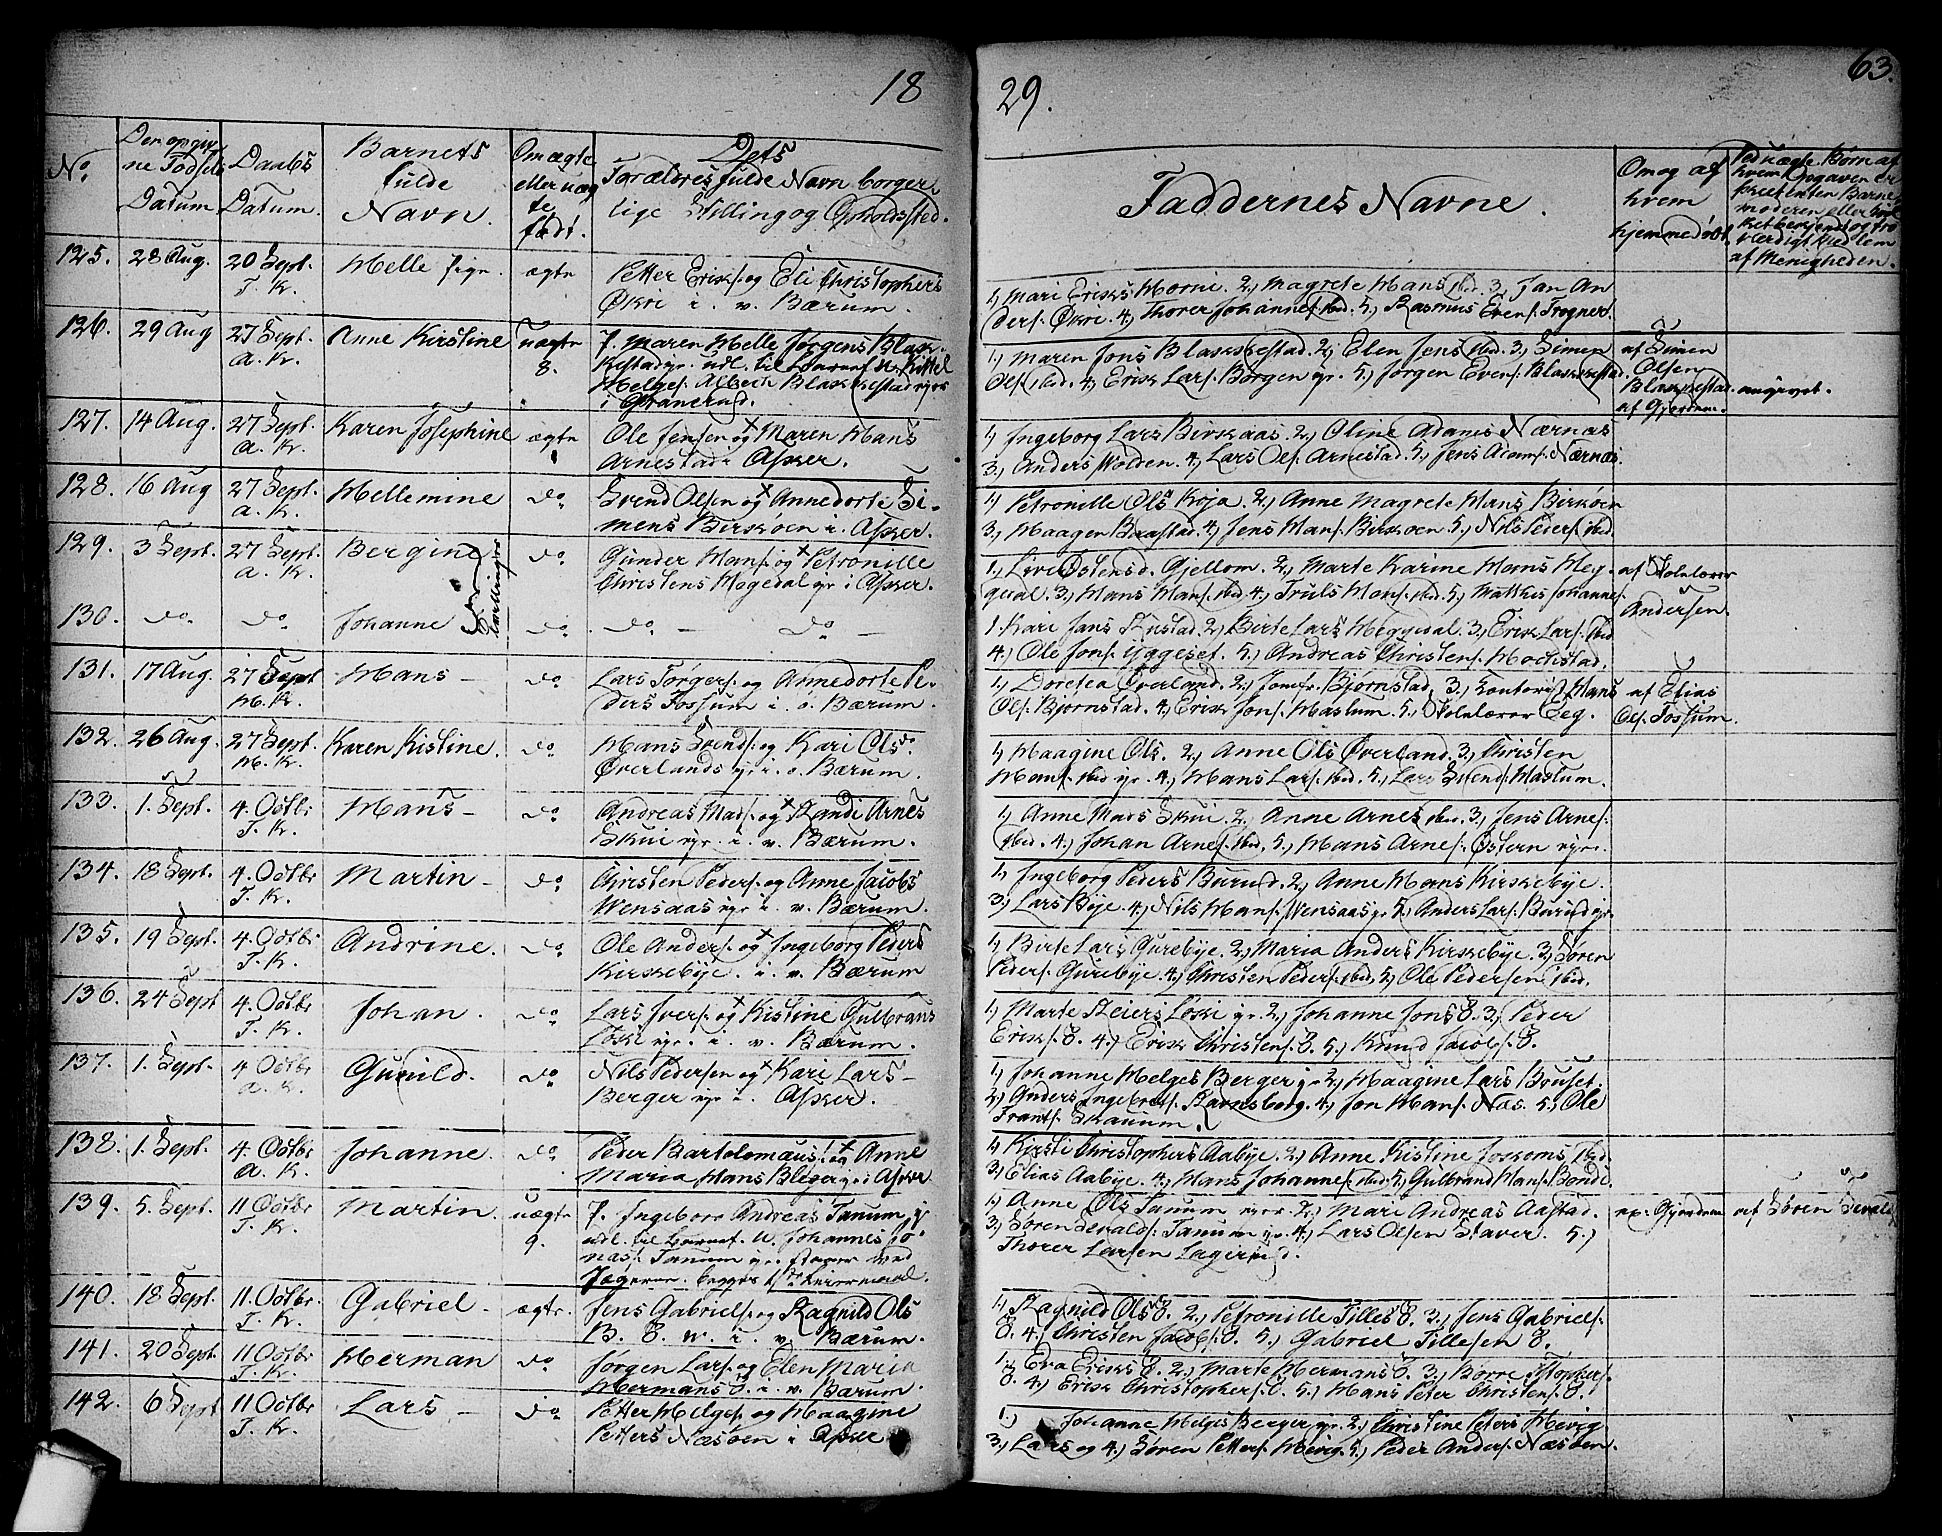 18
No.
Den opgiv
ne Fødsels
Datum
Daabs
Datum.
Barnets
fulde
Navn.
Om ægte
eller uæg
te
født.
Dets
Forældres fulde Navn borger-
lige Stilling og Opholdssted.
125. 28 Aug. 20 Sept. Helle Sign. ægte Petter Eriks. og Eli Christophers
T. K. Økri i. v. Bærum.
126. 29 Aug 27 Sept. Anne Kirstine uægte 7. Maren Helle Jørgens Blak-
A. K. 8. kestad yr. udl. til Barnef.
Helges. Blakkestad
i
127. 14 Aug. 27 Sept. Karen Josephine ægte Ole Jensen og Maren Hans
A. K. Arnestad i Asker.
128. 16 Aug 27 Sept. Hellemine do Svend Olsen og Annedorte Si-
A. K. mens Birkøen i. Asker.
129. 3 Sept. 27 Sept. Bergine do Gunder Hans. og Petronille
A. K. Christens Høgedal yr i Asker.
Tvillinger
130. do do Johanne do do — do —
131. 17 Aug. 27 Sept Hans — do Lars Torgers. og Annedorte Pe-
H. K. ders Fossum i. ø. Bærum.
132. 26 Aug. 27 Sept. Karen Kistine. do Hans Svends. og Kari Ols
H. K. Øverlands yr. i. ø. Bærum.
133. 1. Sept. 4. Octbr Hans — do Andreas Mads. og Randi Arnes
T. K. Skui yr. i. v. Bærum.
134. 18 Sept. 4. Octbr Martin — do Christen Peders. og Anne Jacobs
T. K. Wensaas yr i. v. Bærum.
135. 19 Sept. 4. Octbr Andrine. do Ole Anders. og Ingeborg Peders
T. K. Kirkebye. i. v. Bærum
136. 24 Sept 4. Octbr Johan. do Lars Ivers. og Kistine Gulbrans
T. K. Løski yr. i. v. Bærum.
137. 1. Sept. 4 Octbr Gunild. do Nils Pedersen og Kari Lars—
A. K. Berger yr i. Asker.
138. 1. Sept. 4. Octbr Johanne. do Peder Bartolomæus. og Anne
A. K. Maria Hans Bleger yr i Asker
139. 5. Sept. 11 Octbr Martin. uægte 7. Ingebor Andreas Tanum yr
T. K. 9. udl. til Barnef. U. Johannes Jo-
nas. Tanum yr.
Jægerne. begges 1ste Leiermaal.
140. 18 Sept. 11. Octbr. Gabriel. ægte. Jens Gabriels. og Ragnild Ols
T. K. B. E. W. i. v. Bærum.
141. 20 Sept. 11 Octbr Herman do Jørgen Lars. og Elen Maria
T. K. Hermans E. i. v. Bærum.
142. 6 Sept 11 Octbr Lars — do Petter Helges. og Haagine
T. K. Petters Næsøen i Asker
29.
63.
Faddernes Navne.
Om og af
hvem
hjemmedøbt.
Ved uægte Børn af
hvem Opgaven er
skeet enten Barne
moderen eller
ket bekjendt og tro
værdigt Medlem
af Menigheden.
1, Mari Eriks Horni. 2, Magrete Hans ibid. 3, Jan An
ders. Økri. 4, Thorer Johannes. ibid. 5, Rasmus Evens. Frogner.
1, Maren Jons Blakkestad. 2, Elen Jens ibid. 3, Simen
Ols. ibid. 4, Erik Lars. Borgen yr. 5, Jørgen Evens. Blakkestad.
af Simen
Olsen
Blakkestad.
af Gjordem.
angivet.
1, Ingeborg Lars Birkaas. 2, Oline Adams Nærnæs
3, Anders Wolden. 4, Lars Ols. Arnestad. 5, Jens Adams. Nærnæs.
1, Petronille Ols Kroja. 2, Anne Magrete Hans Birkøen
3, Haagen Braastad. 4, Jens Hans. Birkøen. 5, Nils Peders. ibid.
1, Live Østensd. Gjellom. 2, Marte Karine Hans Heg-
gedal. 3, Hans Hans. ibid. 4, Truls Hans. ibid. 5, Mathis Johannes.
af Skolelærer
Andersen.
1. Kari Jans Rustad. 2, Birte Lars Heggedal. 3, Erik Lars. ibid
4, Ole Jons. Yggeset. 5, Andreas Christens. Hoctstad.
1, Doretea Øverland. 2, Jomfr. Bjørnstad, 3, Kontorist Hans
Ols. Bjørnstad. 4, Erik Jons. Haslum. 5, Skolelærer Eeg.
af Elias
Ols. Fossum.
1, Haagine Ols. 2, Anne Ols Øverland. 3, Christen
Hans. ibid yr. 4, Hans Lars. ibid. 5, Lars Svends. Haslum.
1, Anne Mads Skui. 2, Anne Arnes ibid. 3, Jens Arnes.
ibid. 4, Johan Arnes. ibid. 5, Hans Arnes. Østern yr.
1, Ingeborg Peders Burud. 2, Anne Hans Kirkebye.
3, Lars Bye. 4, Nils Hans. Wensaas yr 5, Anders Lars. Burud yr.
1, Birte Lars Gurebye. 2, Maria Anders Kirkebye. 3, Søren
Peders. Gurebye. 4, Christen Peders. ibid. 5, Ole Pedersen ibid.
1, Marte Reiers Løski yr. 2, Johanne Jons E. 3, Peder
Eriks. E. 4, Erik Christens. E. 5, Knud Jacobs. E.
1, Johanne Helges Berger yr 2, Haagine Lars Bruset.
3, Anders Ingebrets. Ravnsborg. 4, Jon Hans. Næs. 5, Ole
Frants. Skaum.
1, Kirsti Christophers Aabye. 2, Anne Kistine Joskoms ibid.
3, Elias Aabye. 4, Hans Johannes. ibid. 5, Gulbrand Hans. Bondi.
1, Anne Ols Tanum yr. 2, Mari Andreas Aastad.
3, Søren Sevalds. Tanum yr. 4, Lars Olsen Staver. 5,
Thorer Larsen Lagerud.
Gjordem
af Søren Sevalds
1, Ragnild Ols E. 2, Petronille Tilles E. 3, Jens Gabriels.
E. 4, Christen Jacobs. E. 5, Gabriel Tillesen E.
1. Eva Eriks E. 2, Marte Hermans E. 3, Børre Stopher.
E. 4, Erik Christophers. E. 5, Hans Peter Christens. E.
1, Johanne Helges Berger yr. 2, Christine Peters Hevig
3, Lars og 4, Søren Petters. Hevig. 5, Peder Anders. Næsøen.